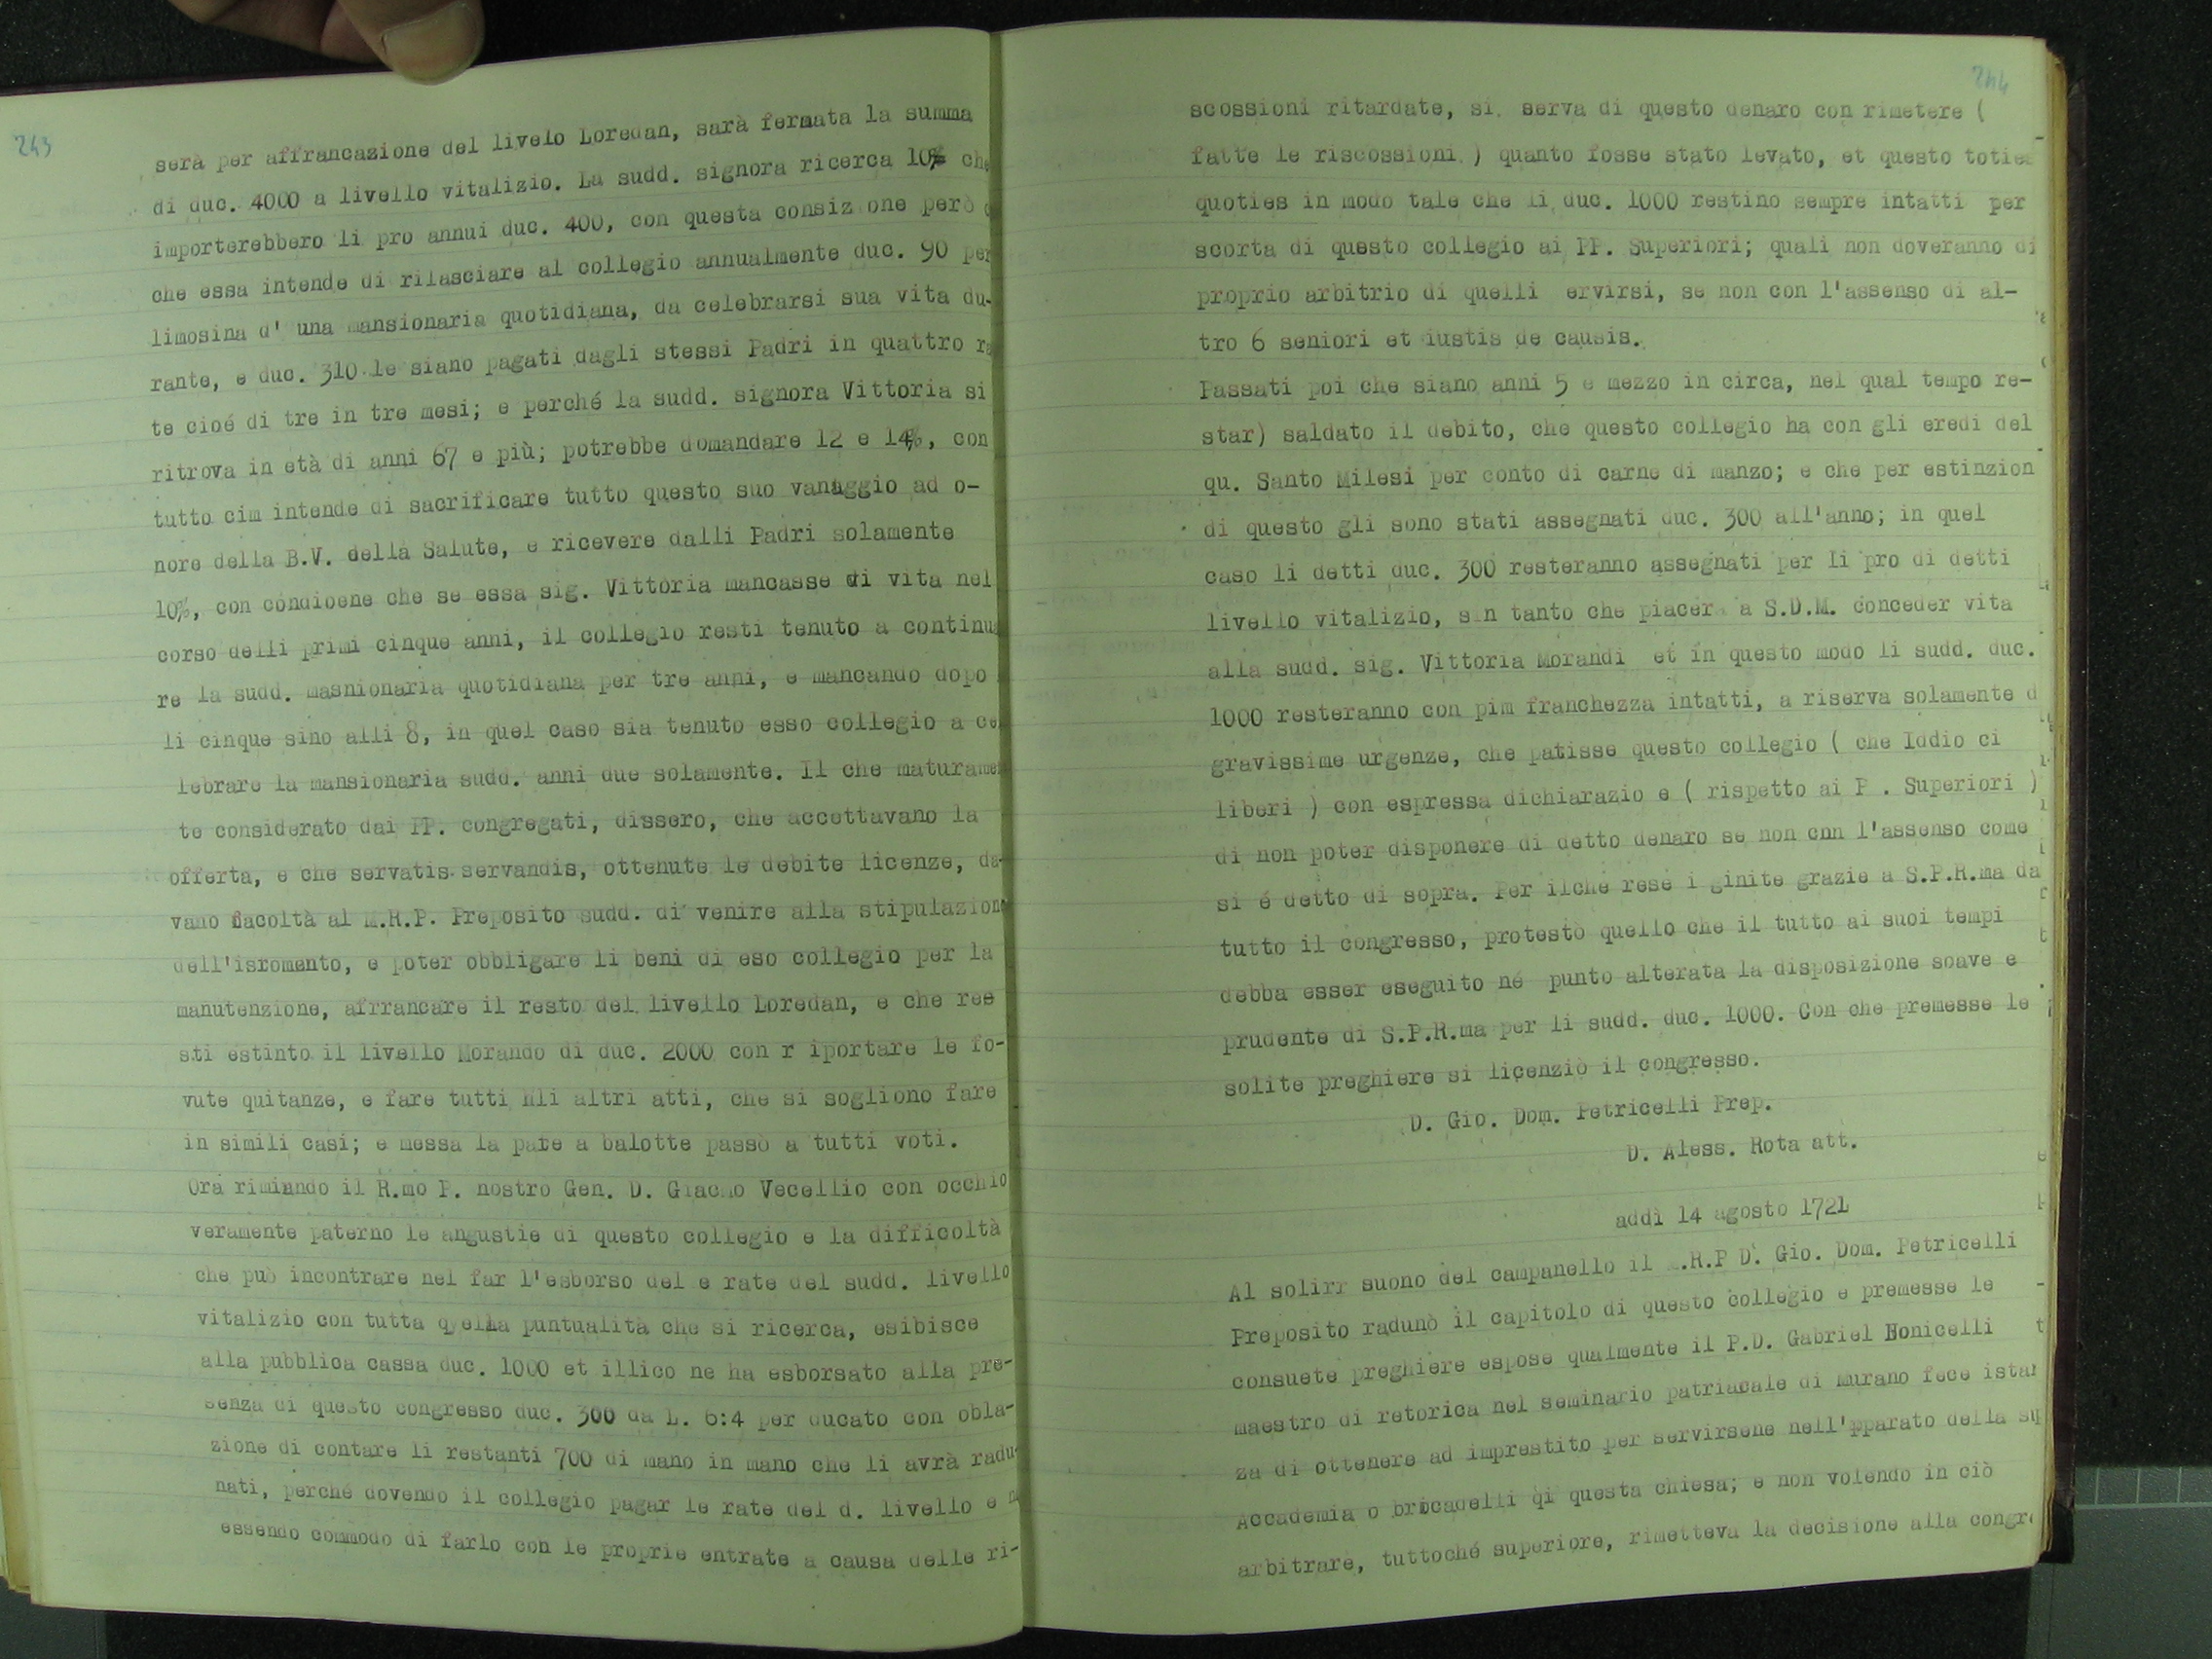 243
serà per affrancazione del livelo Loredan, sarà fermata la summa
di duc. 4000 a livello vitalizio. La sudd. signora ricerca 10% che
importerebbero li pro annui duc. 400, con questa consiz one però
che essa intende di rilasciare al collegio annualmente duc. 90 per
limosina d' una mansionaria quotidiana, da celebrarsi sua vita du-
rante, e duc. 310 le siano pagati dagli stessi Padri in quattro ra
te cioé di tre in tre mesi; e perché la sudd. signora Vittoria si
ritrova in età di anni 67 e più; potrebbe domandare 12 e 14%, con
tutto cim intende di sacrificare tutto questo suo vanaggio ad o-
nore della B.V. della Salute, e ricevere dalli Padri solamente
10%, con condioene che se essa sig. Vittoria mancasse di vita nel
corso delli primi cinque anni, il collegio resti tenuto a continua
re la sudd. masnionaria quotidiana per tre anni, e mancando dopo
li cinque sino alli 8, in quel caso sia tenuto esso collegio a ce
lebrare la mansionaria sudd. anni due solamente. Il che maturamen
te considerato dai PP. congregati, dissero, che accettavano la
offerta, e che servatis servandis, ottenute le debite licenze, da-
vano facoltà al M.R.P. Preposito sudd. di venire alla stipulazione
dell'isromento, e poter obbligare li beni di eso collegio per la
manutenzione, afrrancare il resto del livello Loredan, e che res
sti estinto il livello Morando di duc. 2000 con r iportare le fo-
vute quitanze, e fare tutti hli altri atti, che si sogliono fare
in simili casi; e messa la pate a balotte passò a tutti voti.
Ora rimiando il R.mo P. nostro Gen. D. Giacmo Vecellio con occhio
veramente paterno le angustie di questo collegio e la difficoltà
che può incontrare nel far l'esborso del e rate del sudd. livello
vitalizio con tutta quella puntualità che si ricerca, esibisce
alla pubblica cassa duc. 1000 et illico ne ha esborsato alla pre-
senza di questo congresso duc. 300 da L. 6:4 per ducato con obla-
zione di contare li restanti 700 di mano in mano che li avrà radu-
nati, perché dovendo il collegio pagar le rate del d. livello e n
essendo commodo di farlo con le proprie entrate a causa delle ri-
244
scossioni ritardate, si serva di questo denaro con rimetere (
fatte le riscossioni ) quanto fosse stato levato, et questo toties
quoties in modo tale che li duc. 1000 restino sempre intatti per
scorta di questo collegio ai PP. Superiori; quali non doveranno di
proprio arbitrio di quelli ervirsi, se non con l'assenso di al-
tro 6 seniori et iustis de causis.
Passati poi che siano anni 5 e mezzo in circa, nel qual tempo re-
star) saldato il debito, che questo collegio ha con gli eredi del
qu. Santo Milesi per conto di carne di manzo; e che per estinzion
di questo gli sono stati assegnati duc. 300 all'anno; in quel
caso li detti duc. 300 resteranno assegnati per li pro di detti
livello vitalizio, sin tanto che piacer a S.D.M. conceder vita
alla sudd. sig. Vittoria Morandi et in questo modo li sudd. duc.
1000 resteranno con pim franchezza intatti, a riserva solamente d
gravissime urgenze, che patisse questo collegio ( che Iddio ci
liberi ) con espressa dichiarazio e ( rispetto ai P . Superiori )
di non poter disponere di detto denaro se non cnn l'assenso come
si é detto di sopra. Per ilche rese i ginite grazie a S.P.R.ma da
tutto il congresso, protestò quello che il tutto ai suoi tempi
debba esser eseguito né punto alterata la disposizione soave e
prudente di S.P.R.ma per li sudd. duc. 1000. Con che premesse le
solite preghiere si licenziò il congresso.
D. Gio. Dom. Petricelli Prep.
D. Aless. Rota att.
addì 14 agosto 1721
Al solirr suono del campanello il .R.P D. Gio. Dom. Petricelli
Preposito radunò il capitolo di questo collegio e premesse le
consuete preghiere espose qualmente il P.D. Gabriel Bonicelli
maestro di retorica nel seminario patriacale di Murano fece istan
za di ottenere ad imprestito per servirsene nell'pparato della su
Accademia o brocadelli qi questa chiesa; e non volendo in ciò
arbitrare, tuttoché superiore, rimetteva la decisione alla congre